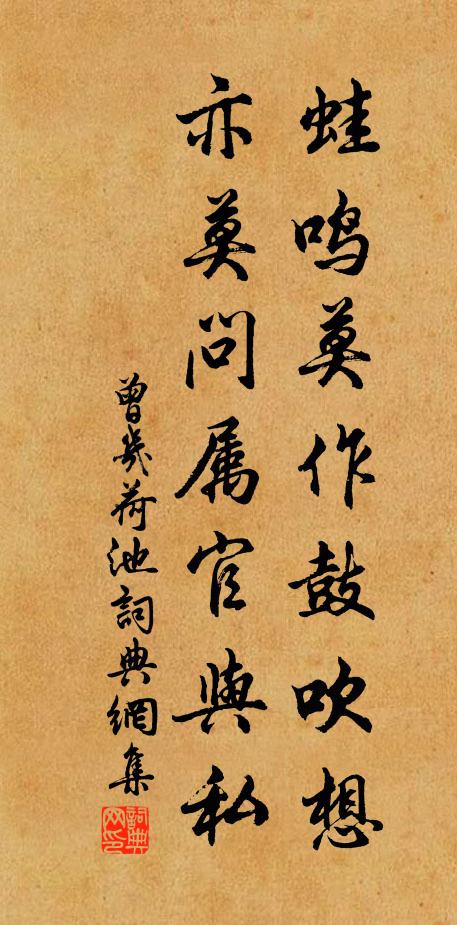 蛙鸣莫作鼓吹想
亦莫问属官與私
曾幾荷池詞典網集
詞典网印